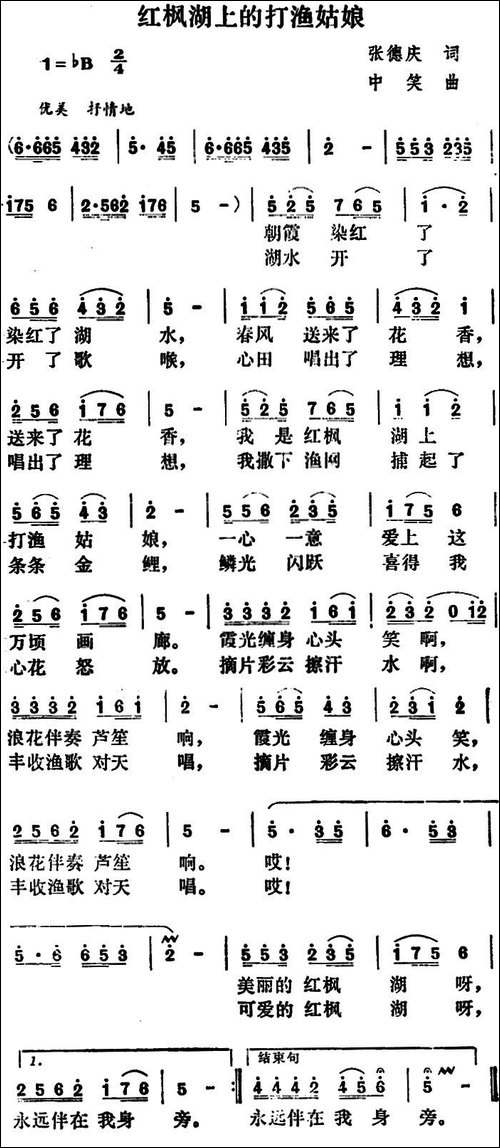 红枫湖上的打渔姑娘
1=♭B 2/4
张德庆 词
中 笑 曲
优美 抒情地
(6·665 432 | 5· 45 | 6·665 435 | 2 - | 553 235 |
175 6 | 2·562 176 | 5 - ) | 525 765 | 1·2 |
朝霞 染红 了
湖水 开 了
656 432 | 5 - | 112 565 | 432 1 |
染红了 湖 水， 春风 送来了 花 香，
开 了 歌 喉， 心田 唱出了 理 想，
256 176 | 5 - | 525 765 | 1 12 |
送来了 花 香， 我 是 红枫 湖上
唱出了 理 想， 我撒下 渔网 捕起了
565 43 | 2 - | 556 235 | 175 6 |
打渔 姑 娘， 一心 一意 爱上 这
条条 金 鲤， 鳞光 闪跃 喜得 我
256 176 | 5 - | 3332 161 | 232 012 |
万顷 画 廊。 霞光缠身 心头 笑 啊，
心花 怒 放。 摘片彩云 擦汗 水 啊，
3332 161 | 2 - | 565 43 | 231 2 |
浪花伴奏 芦笙 响， 霞光 缠身 心头 笑，
丰收渔歌 对天 唱， 摘片 彩云 擦汗 水，
2562 176 | 5 - | 5· 35 | 6· 53 |
浪花伴奏 芦笙 响。 哎！
丰收渔歌 对天 唱。 哎！
5·6 653 | 2 - | 553 235 | 175 6 |
美丽的 红枫 湖 呀，
可爱的 红枫 湖 呀，
1. 结束句
2562 176 | 5 - :‖ 4442 456 | 5 - ‖
永远伴在 我身 旁。 永远伴在 我 身 旁。